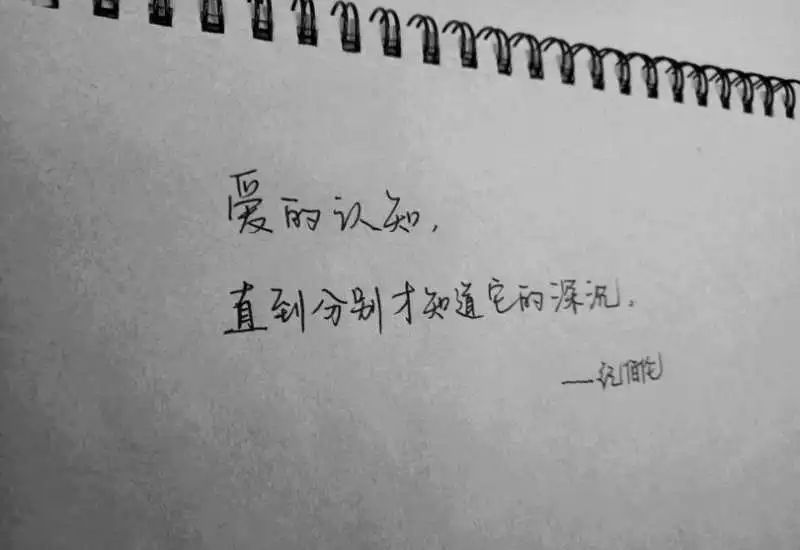 爱的认知,
直到分别才知道它的深沉。
——纪伯伦